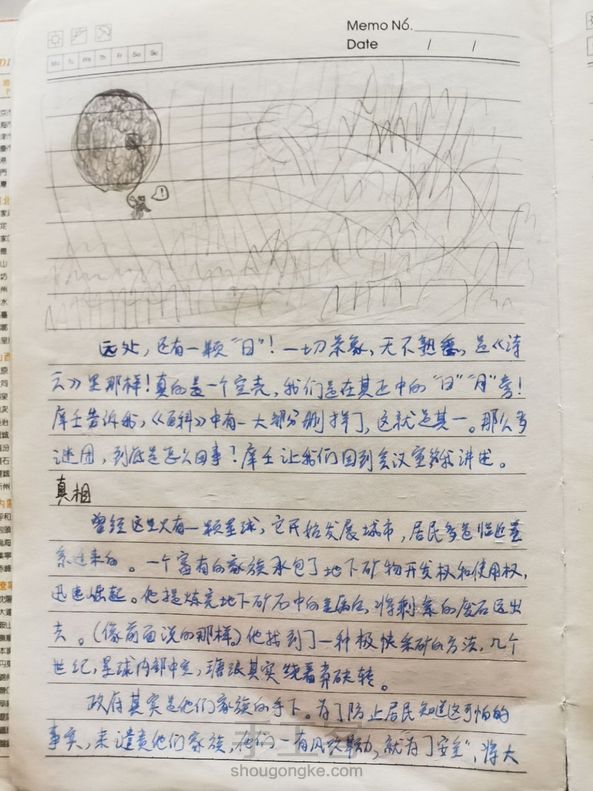 Memo No.
Date / /
Mo Tu We Th Fr Sa Su
!
远处,还有一颗“日”!一切景象,无不熟悉,是《诗
云》里那样!真的是一个空壳,我们是在真正中的“日”“月”旁!
库壬告诉我,《百科》中有一大部分删掉了,这就是其一。那么多
谜团,到底是怎么回事?库壬让我们回到会议室听他讲述。
真相
曾经这里只有一颗星球,它开始发展城市,居民多是临近星
系过来的。一个富有的家族承包了地下矿物开发权和使用权,
迅速崛起。他提炼完地下矿石中的金属后,将剩余的废石运出
去。(像前面说的那样)他找到了一种极快采矿的方法,几个
世纪,星球内部中空,
其实绕着
转。
政府其实是他们家族的手下。为了防止居民知道这可怕的
事实,来谴责他们家族,他们一有风吹草动,就“为了安全”,将大
手工客
shougongke.com